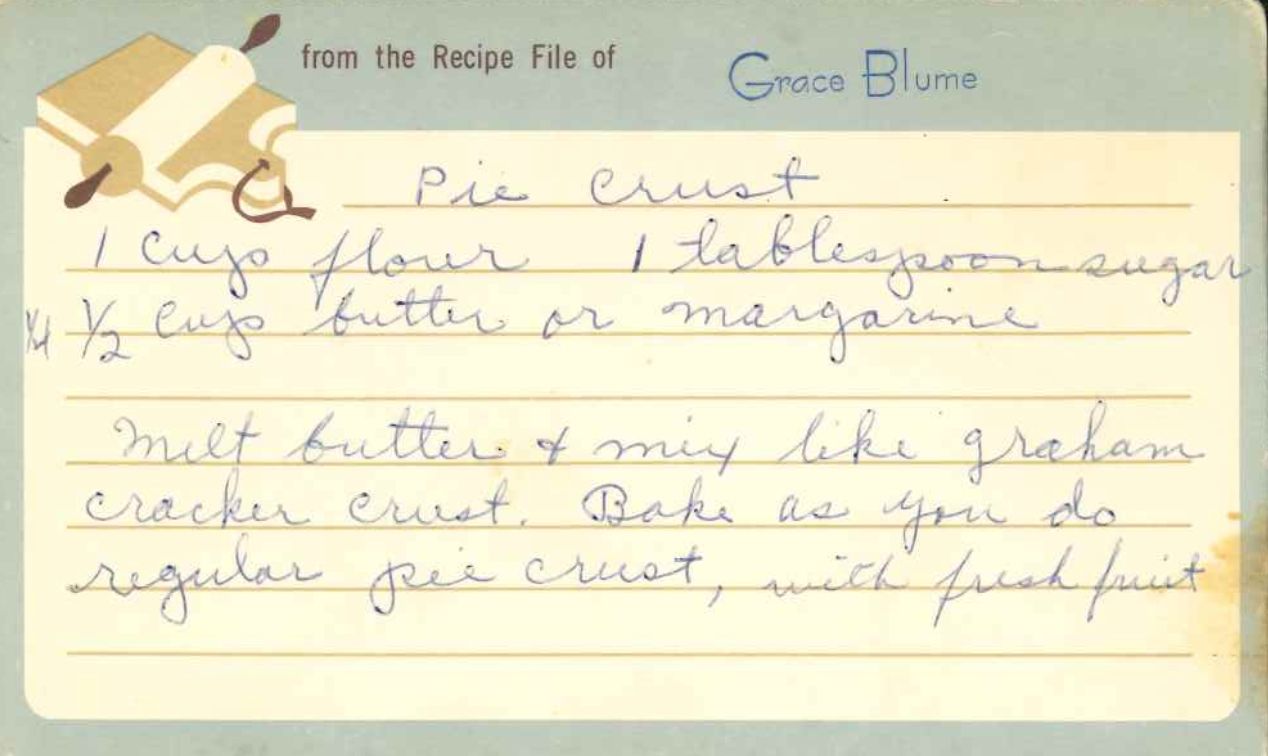 from the Recipe File of Grace Blume
Pie Crust
1 cups flour 1 tablespoon sugar
1/4 1/2 cups butter or margarine
Melt butter & mix like graham
cracker crust. Bake as you do
regular pie crust, with fresh fruit